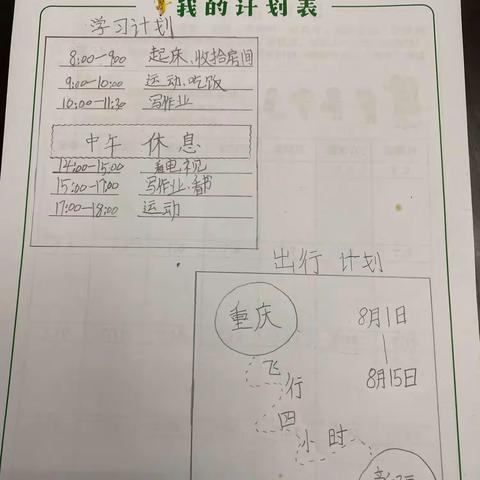 我的计划表
学习计划
8:00—9:00 起床、收拾房间
9:00—10:00 运动、吃饭
10:00—11:30 写作业
中午 休息
14:00—15:00 看电视
15:00—17:00 写作业、看书
17:00—18:00 运动
出行 计划
重庆
8月1日
|
8月15日
飞行四小时